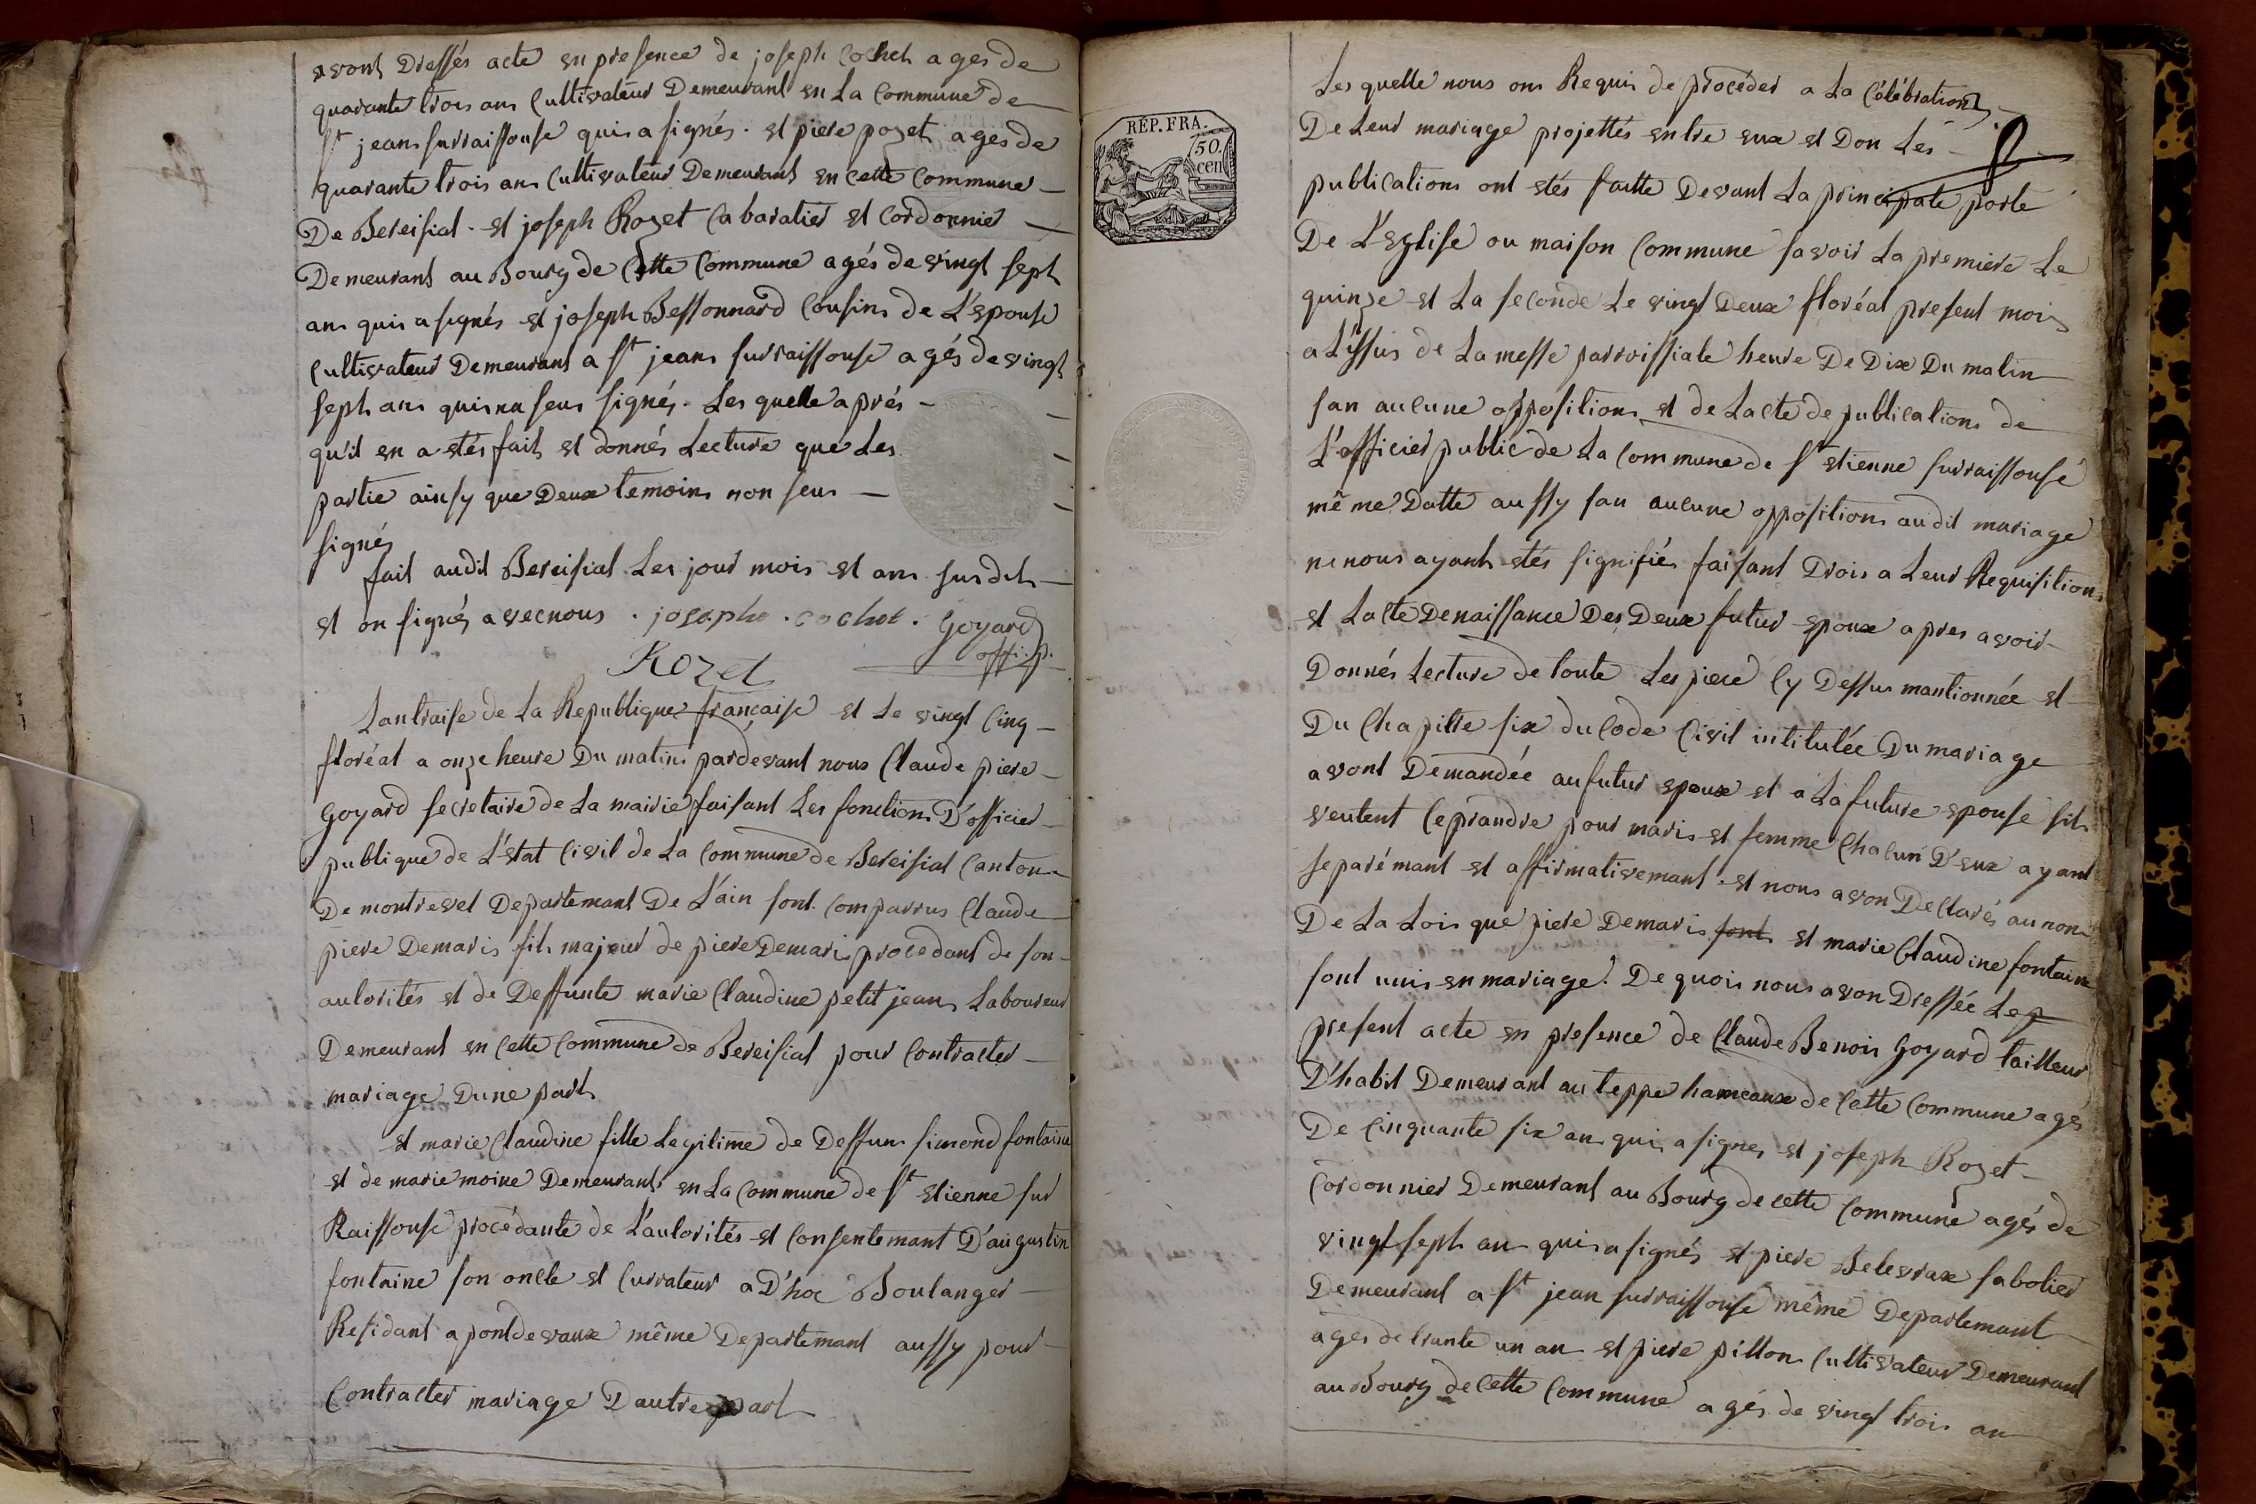 avont Dressés acte en presence de joseph Cochet ages de
quarante trois ans Cultivateur Demeurant en La Commune de
st jean surraissouse quis a signés. et piere pozet ages de
quarante trois ans Cultivateur Demeurant en cette Commune
De Bereisiat. et joseph Rozet Cabaratier et Cordonnier
Demeurant au Bourg de Cette Commune agés de vingt sept
ans quis a signés et joseph Bessonnard Cousins de L'epouse
Cultivateur Demeurant a st jean surraissouse agés de vingt
sept ans quis na seus signés. Les quelle aprés
qu'il en a etés fait et donnés Lecture que Les
partie ainsy que Deux temoins non seus
signés
fait audit Bereisiat Les jour mois et ans susdits
et on signés avec nous. josephe. cochet. Goyard
Rozet offi. p.
Lantraise de La Republique française et Le vingt Cinq
floréal a onze heure Du matin pardevant nous Claude piere
Goyard secretaire de La mairie faisant Les fonctions D'officier
publique de L'etat Civil de La Commune de Bereisiat Canton
De montrevel Departemant De L'ain sont Comparrus Claude
piere Demaris fils majeur de piere Demaris procedant de son
autorités et de Deffunte marie Claudine petit jean Laboureur
Demeurant en Cette Commune de Bereisiat pour Contracter
mariage Dune part
et marie Claudine fille Legitime de Deffun simond fontaine
et de marie moine Demeurant en La Commune de st etienne sur
Raissouse procédante de L'autorités et Consentemant D'augustin
fontaine son oncle et Currateur a D'hoc Boulanger
Residant a pontdevaux même Departemant aussy pour
Contracter mariage Dautre part
RÉP. FRA.
50.
cen
Les quelle nous ons Requis de procéder a La Célébration
De Leur mariage projettés entre eux et Don Les
publications ont etés faitte Devant La principale porte
De L'Eglise ou maison Commune savoir La premiere Le
quinze et La seconde Le vingt Deux floréal present mois
a L'issus de La messe parroissiale heure De Dix Du matin
san aucune oppositions et de Lacte de publications de
L'officier public de La Commune de st etienne surraissouse
même Datte aussy san aucune oppositions audit mariage
ne nous ayant etés signifiés faisant Drois a Leur Requisitions
et Lacte De naissance Des Deux futur epoux apres avoir
Donnés Lecture de toute Les piece Cy Dessus mantionnée et
Du Chapitre six du Code Civil intitulée Du mariage
avont Demandée au futur epoux et a La future epouse sils
veulent Ceprandre pour maris et femme Chacun D'eux ayant
separémant et affirmativemant. et nous avon Declarés au nom
De La Lois que piere Demaris font et marie Claudine fontaine
sont unis en mariage. De quois nous avon Dressée Le p
present acte en presence de Claude Benois Goyard tailleur
D'habit Demeurant au teppe hameaux de Cette Commune agés
De Cinquante six an qui a signés et joseph Rozet
Cordonnier Demeurant au Bourg de cette Commune agés de
vingt sept an quis a signés et piere Belevrax sabotier
Demeurant a st jean surraissouse même Departemant
ages de trante un an et piere pillon Cultivateur Demeurant
au Bourg de Cette Commune agés de vingt trois an